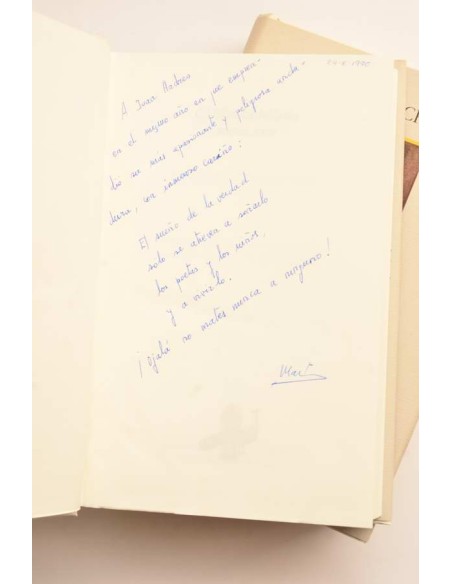 A Juan Madrid
en el mismo año en que empren-
dió su más apasionante y peligrosa anda-
dura, con inmenso cariño:
El sueño de la verdad
solo se atreven a soñarlo
los poetas y los niños,
y a vivirlo.
¡Ojalá no mates nunca a ninguno!